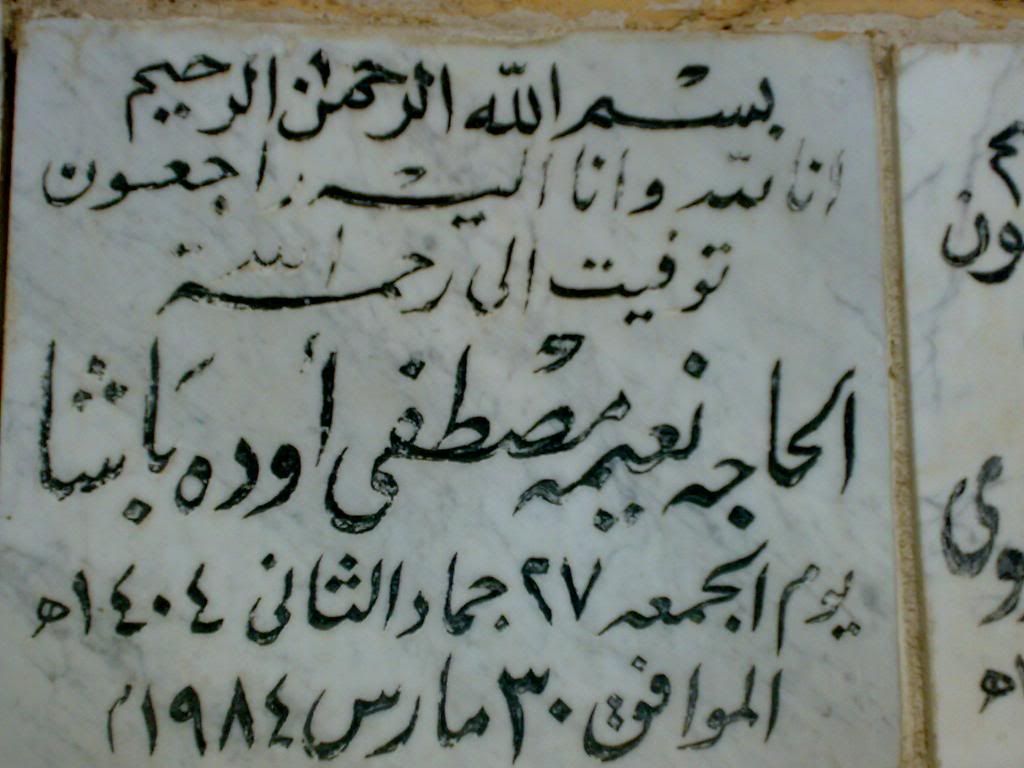 بسم الله الرحمن الرحيم
انا لله وانا اليه راجعون
توفيت الى رحمة الله
الحاجه نعيمه مصطفى أوده باشا
يوم الجمعه ٢٧ جماد الثانى ١٤٠٤ه
الموافق ٣٠ مارس ١٩٨٤م